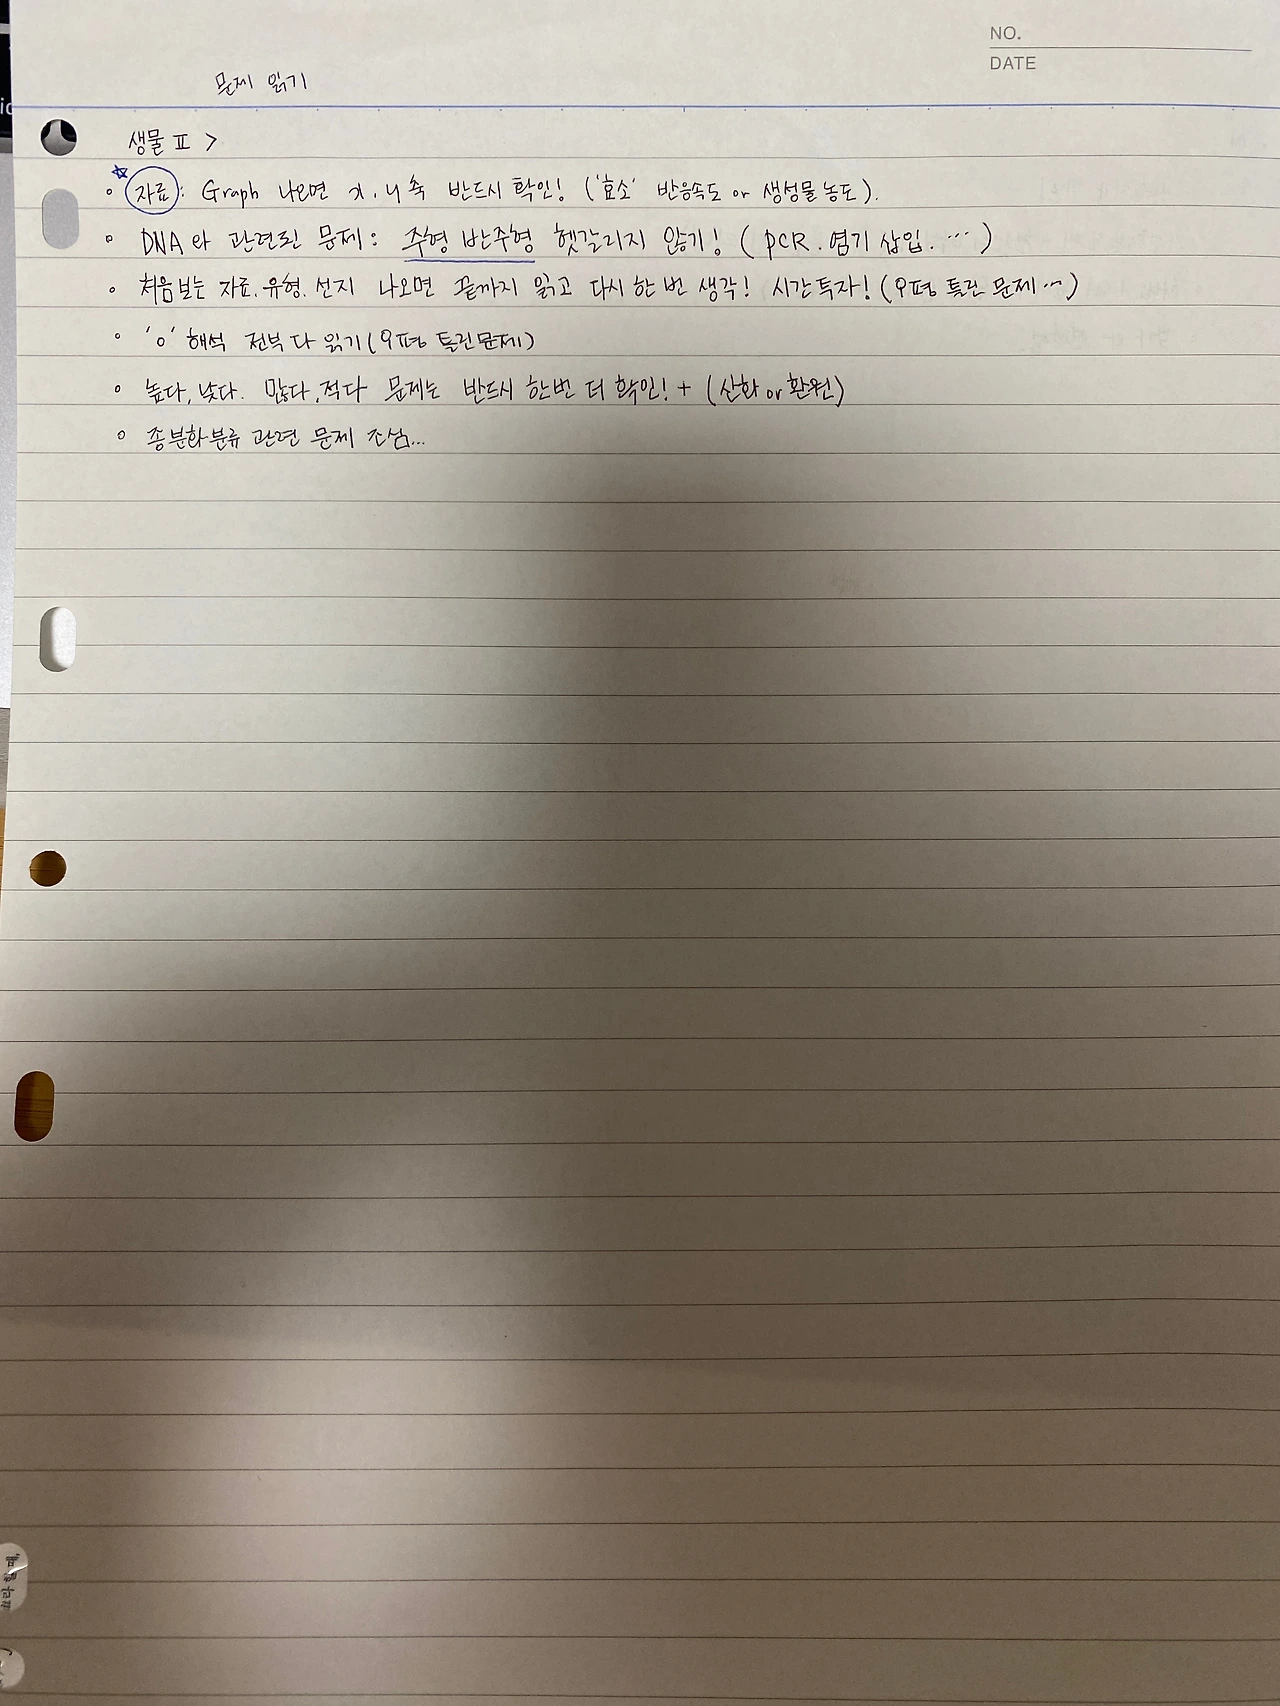 NO.
DATE
문제 읽기
생물 Ⅱ >
☆ 자료 : Graph 나오면 x, y축 반드시 확인! ('효소' 반응속도 or 생성물농도).
DNA와 관련된 문제 : 주형 반주형 헷갈리지 않기! (PCR. 염기 삽입. …)
처음보는 자료.유형.선지 나오면 끝까지 읽고 다시 한 번 생각! 시간투자! (9평 틀린 문제…)
'o' 해석 전부 다 읽기 (9평 틀린문제)
높다, 낮다. 많다, 적다 문제는 반드시 한번 더 확인! + (산화 or 환원)
종분화분류 관련 문제 조심…